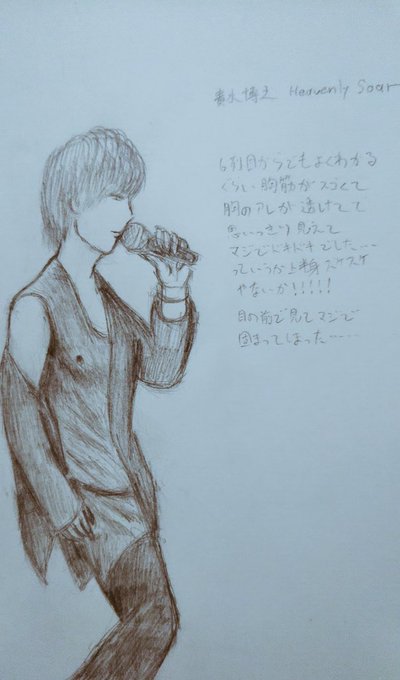 貴水博之 Heavenly Soar
6列目からでもよくわかる
くらい胸筋がスゴくて
胸のアレが透けてて
思いっきり見えて
マジでドキドキでした……
っていうか上半身スケスケ
やないか!!!!!
目の前で見てマジで
固まってしまった……